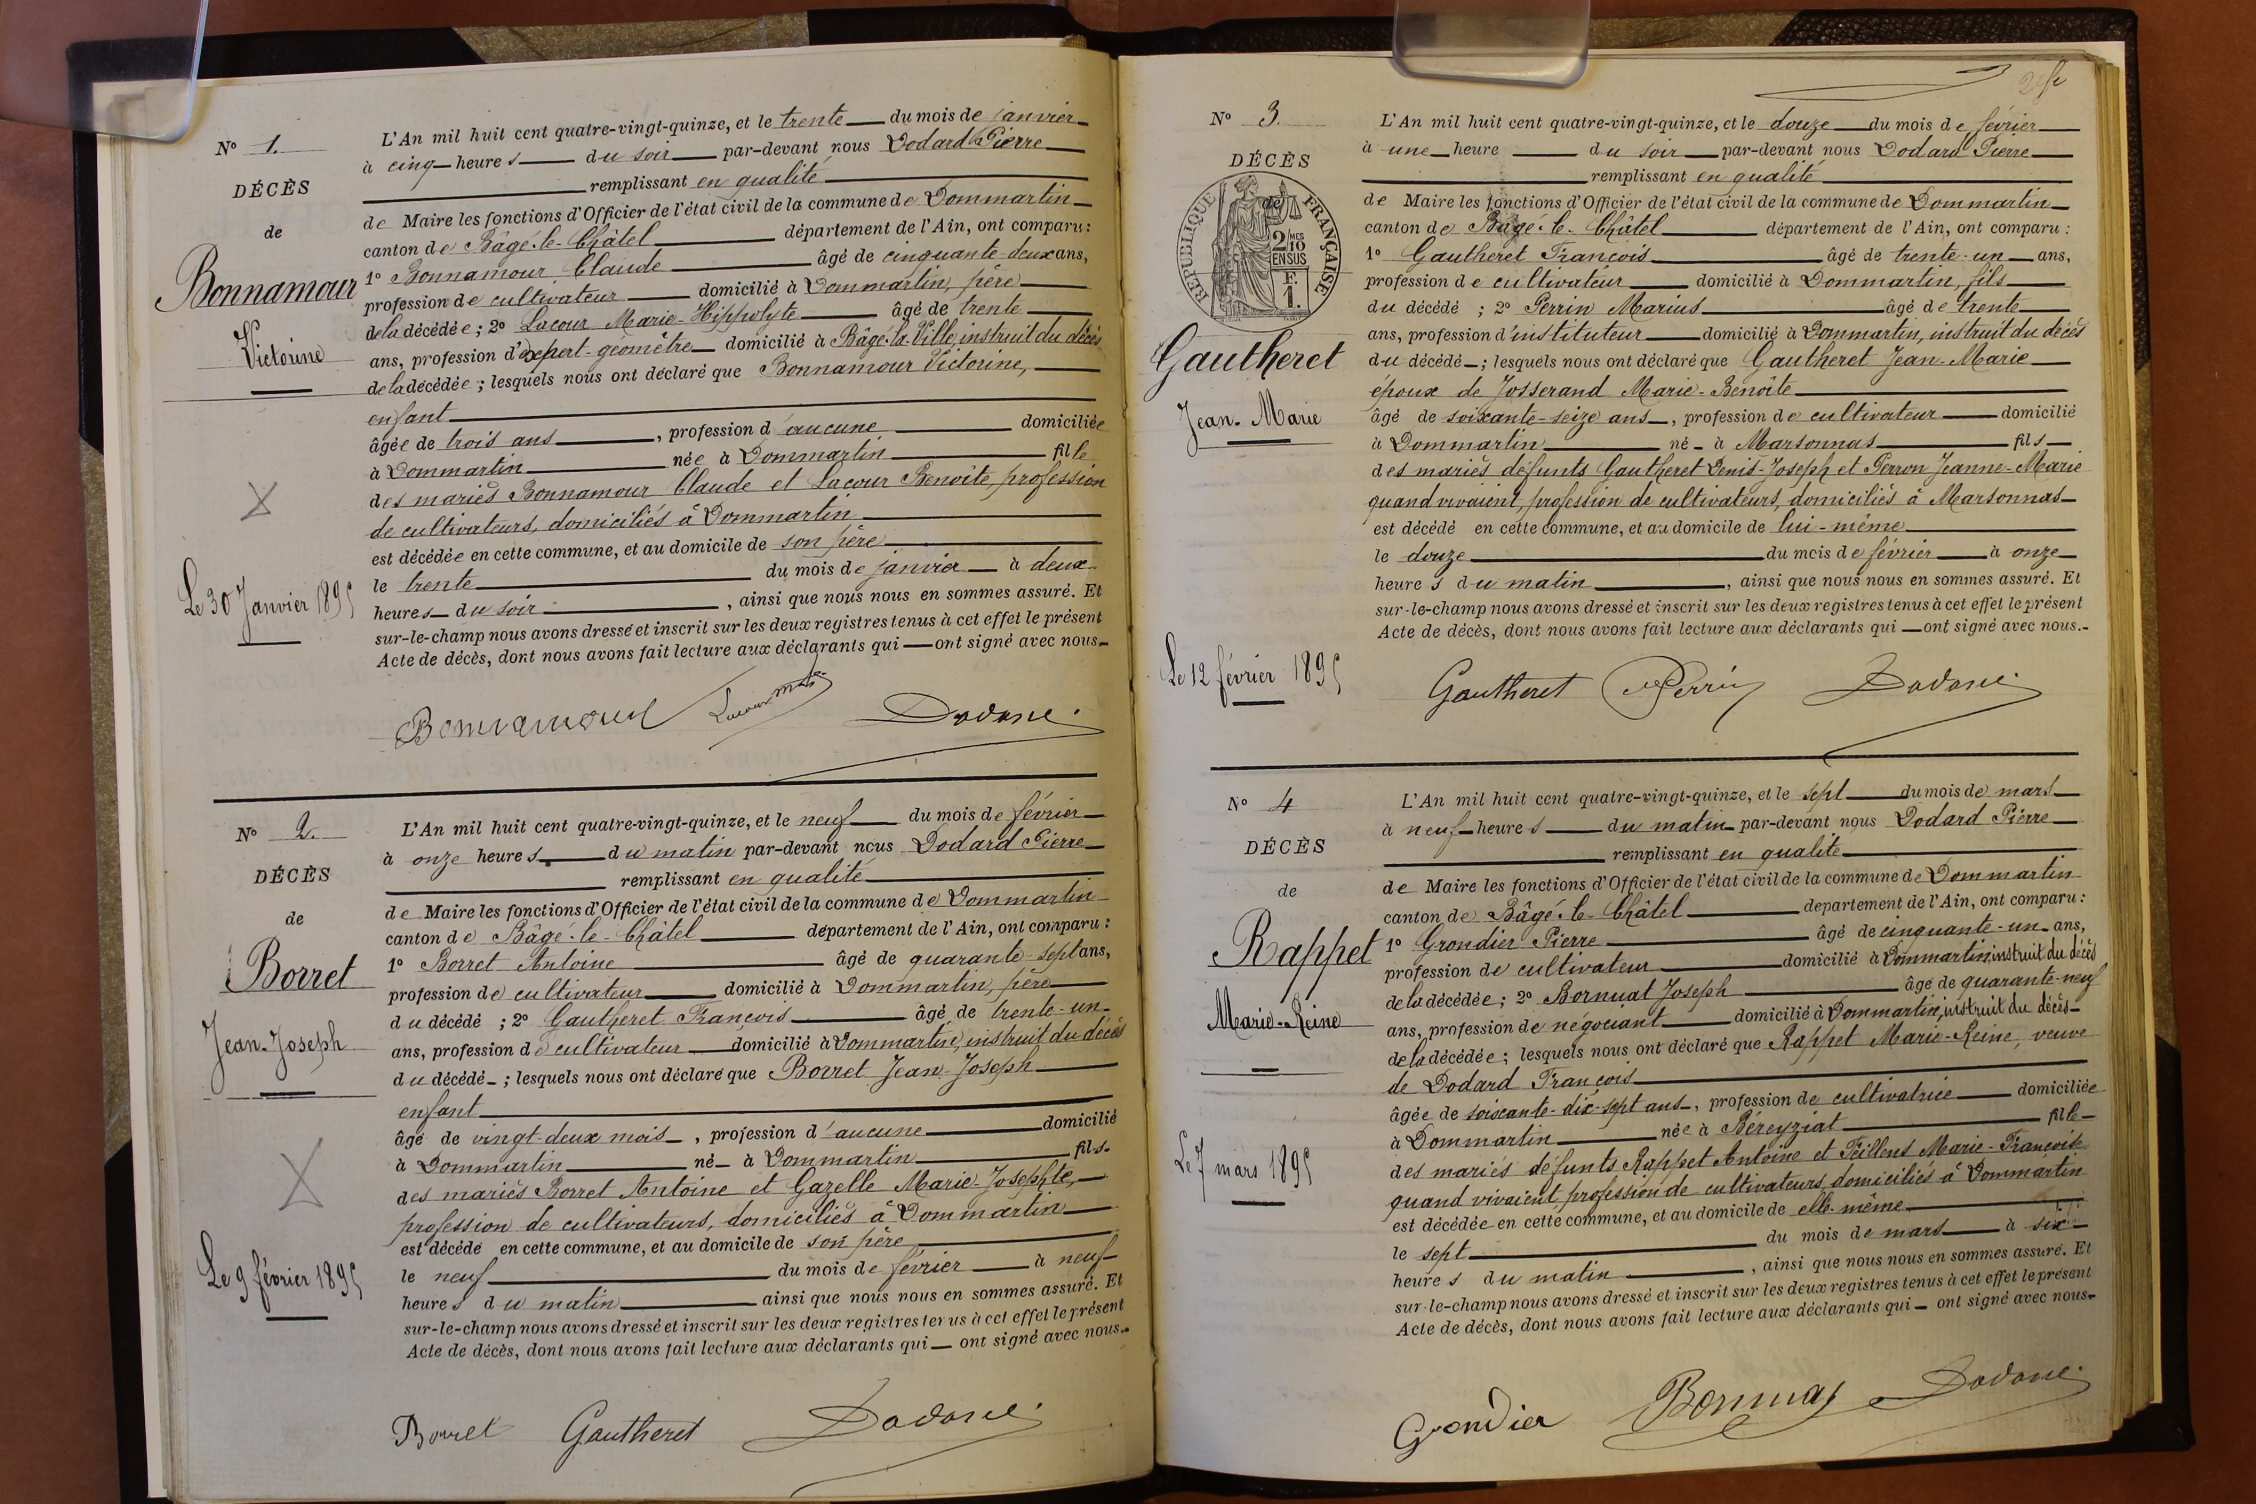 N° 1.
DÉCÈS
de
Bonnamour
Victorine
Le 30 Janvier 1895
L'An mil huit cent quatre-vingt-quinze, et le trente du mois de janvier
à cinq heures du soir par-devant nous Dodard Pierre
remplissant en qualité
de Maire les fonctions d'Officier de l'état civil de la commune de Dommartin
canton de Bâgé-le-Châtel département de l'Ain, ont comparu :
1° Bonnamour Claude âgé de cinquante-deux ans,
profession de cultivateur domicilié à Dommartin, père
de la décédée ; 2° Lacour Marie-Hippolyte âgé de trente
ans, profession d'expert-géomètre domicilié à Bâgé-la-Ville, instruit du décès
de la décédée ; lesquels nous ont déclaré que Bonnamour Victorine,
enfant
âgée de trois ans, profession d'aucune domiciliée
à Dommartin née à Dommartin fille
des mariés Bonnamour Claude et Lacour Benoîte, profession
de cultivateurs, domiciliés à Dommartin
est décédée en cette commune, et au domicile de son père
le trente du mois de janvier à deux
heures du soir, ainsi que nous nous en sommes assuré. Et
sur-le-champ nous avons dressé et inscrit sur les deux registres tenus à cet effet le présent
Acte de décès, dont nous avons fait lecture aux déclarants qui ont signé avec nous.
Bonnamour Lacour Dodard
N° 2.
DÉCÈS
de
Borret
Jean-Joseph
Le 9 février 1895
L'An mil huit cent quatre-vingt-quinze, et le neuf du mois de février
à onze heures du matin par-devant nous Dodard Pierre
remplissant en qualité
de Maire les fonctions d'Officier de l'état civil de la commune de Dommartin
canton de Bâgé-le-Châtel département de l'Ain, ont comparu :
1° Borret Antoine âgé de quarante-sept ans,
profession de cultivateur domicilié à Dommartin, père
du décédé ; 2° Gautheret François âgé de trente-un
ans, profession de cultivateur domicilié à Dommartin, instruit du décès
du décédé ; lesquels nous ont déclaré que Borret Jean-Joseph
enfant
âgé de vingt-deux mois, profession d'aucune domicilié
à Dommartin né à Dommartin fils
des mariés Borret Antoine et Gazelle Marie-Josephte,
profession de cultivateurs, domiciliés à Dommartin
est décédé en cette commune, et au domicile de son père
le neuf du mois de février à neuf
heures du matin ainsi que nous nous en sommes assuré. Et
sur-le-champ nous avons dressé et inscrit sur les deux registres tenus à cet effet le présent
Acte de décès, dont nous avons fait lecture aux déclarants qui ont signé avec nous.
Borret Gautheret Dodard
N° 3.
DÉCÈS
de
RÉPUBLIQUE FRANÇAISE
2/10 MES
EN SUS
F.
1.
Gautheret
Jean-Marie
Le 12 février 1895
L'An mil huit cent quatre-vingt-quinze, et le douze du mois de février
à une heure du soir par-devant nous Dodard Pierre
remplissant en qualité
de Maire les fonctions d'Officier de l'état civil de la commune de Dommartin
canton de Bâgé-le-Châtel département de l'Ain, ont comparu :
1° Gautheret François âgé de trente-un ans,
profession de cultivateur domicilié à Dommartin, fils
du décédé ; 2° Perrin Marius âgé de trente
ans, profession d'instituteur domicilié à Dommartin, instruit du décès
du décédé ; lesquels nous ont déclaré que Gautheret Jean-Marie
époux de Josserand Marie-Benoîte
âgé de soixante-seize ans, profession de cultivateur domicilié
à Dommartin né à Marsonnas fils
des mariés défunts Gautheret Denis-Joseph et Perron Jeanne-Marie
quand vivaient, profession de cultivateurs, domiciliés à Marsonnas
est décédé en cette commune, et au domicile de lui-même
le douze du mois de février à onze
heures du matin, ainsi que nous nous en sommes assuré. Et
sur-le-champ nous avons dressé et inscrit sur les deux registres tenus à cet effet le présent
Acte de décès, dont nous avons fait lecture aux déclarants qui ont signé avec nous.
Gautheret Perrin Dodard
N° 4
DÉCÈS
de
Rappet
Marie-Reine
Le 7 mars 1895
L'An mil huit cent quatre-vingt-quinze, et le sept du mois de mars
à neuf heures du matin par-devant nous Dodard Pierre
remplissant en qualité
de Maire les fonctions d'Officier de l'état civil de la commune de Dommartin
canton de Bâgé-le-Châtel département de l'Ain, ont comparu :
1° Grondier Pierre âgé de cinquante-un ans,
profession de cultivateur domicilié à Dommartin instruit du décès
de la décédée ; 2° Bornuat Joseph âgé de quarante-neuf
ans, profession de négociant domicilié à Dommartin, instruit du décès
de la décédée ; lesquels nous ont déclaré que Rappet Marie-Reine, veuve
de Dodard François
âgée de soixante-dix-sept ans, profession de cultivatrice domiciliée
à Dommartin née à Béreyziat fille
des mariés défunts Rappet Antoine et Feillens Marie-Françoise
quand vivaient, profession de cultivateurs, domiciliés à Dommartin
est décédée en cette commune, et au domicile de elle-même
le sept du mois de mars à six
heures du matin, ainsi que nous nous en sommes assuré. Et
sur-le-champ nous avons dressé et inscrit sur les deux registres tenus à cet effet le présent
Acte de décès, dont nous avons fait lecture aux déclarants qui ont signé avec nous.
Grondier Bornuat Dodard